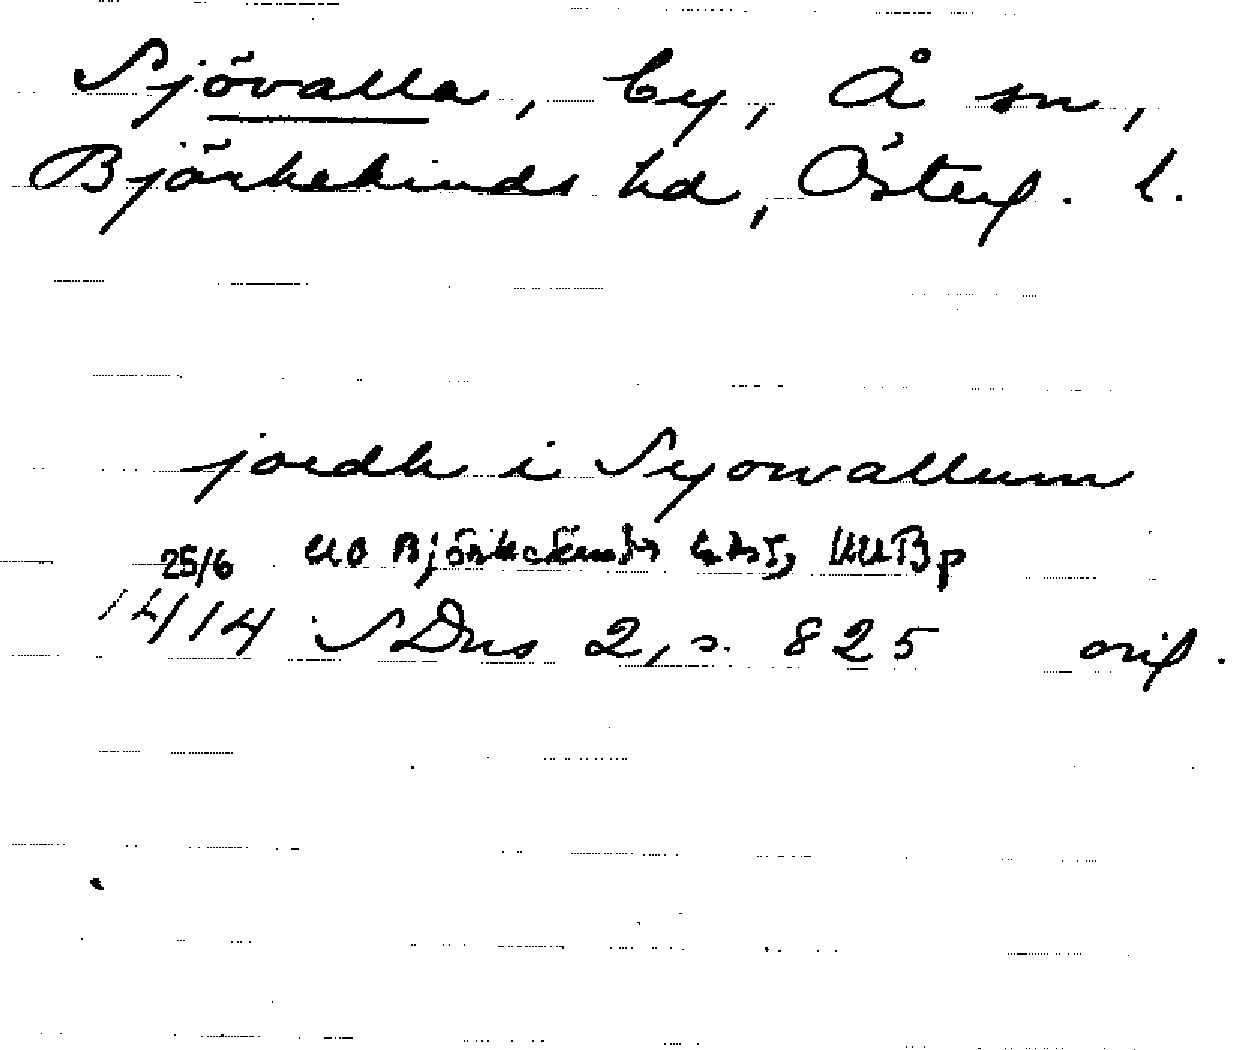 Sjövalla, by, Å sn,
Björkekinds hd, Östergl. l.
jordh i Syowallum
25/6 UO Björkekinds
1414 SDns 2, s. 825 orig.